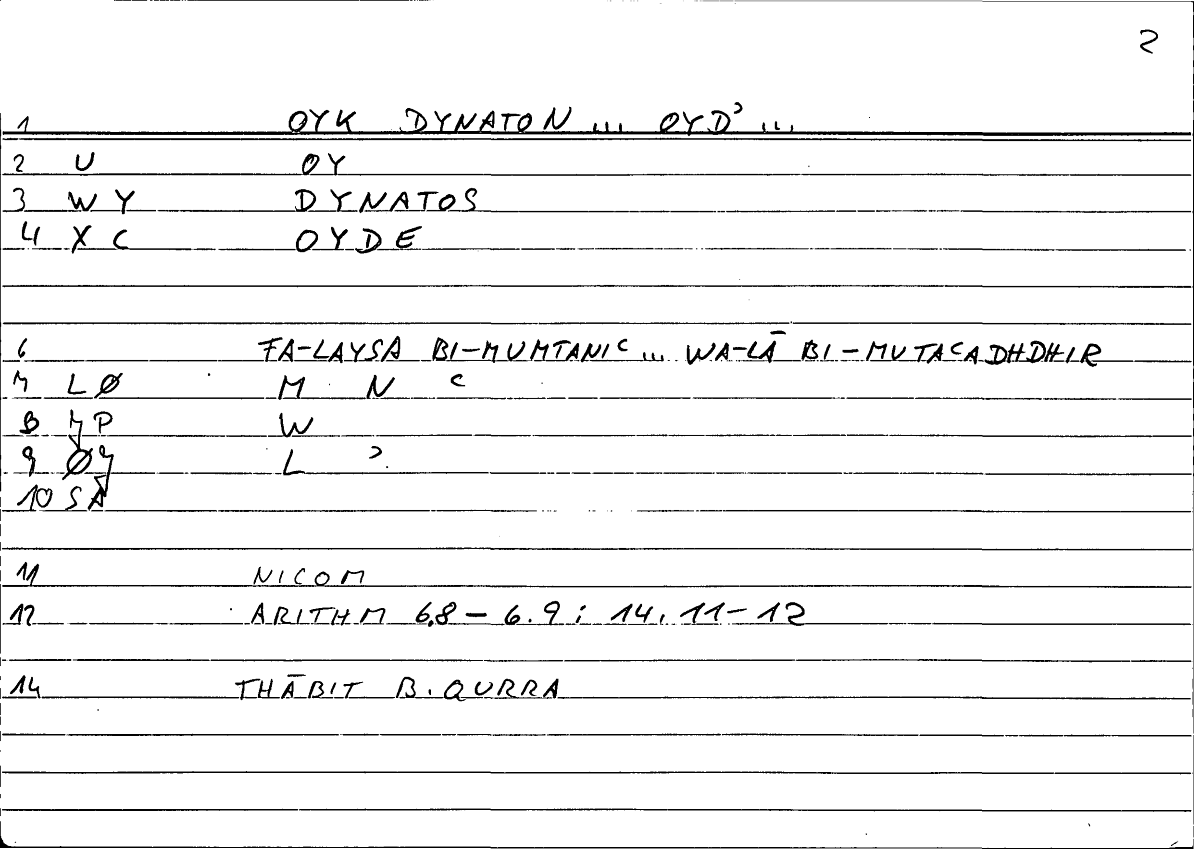 2
1 OYK DYNATON ... OYDʾ ...
2 U OY
3 W Y DYNATOS
4 X C OYDE
6 FA-LAYSA BI-MUMTANIʿ ... WA-LĀ BI-MUTAʿADHDHIR
7 L Ø M N ʿ
8 7 P W
9 Ø 9 L ʾ
10 S A
11 NICOM
12 ARITHM 6.8 - 6.9 ; 14.11-12
14 THĀBIT B. QURRA